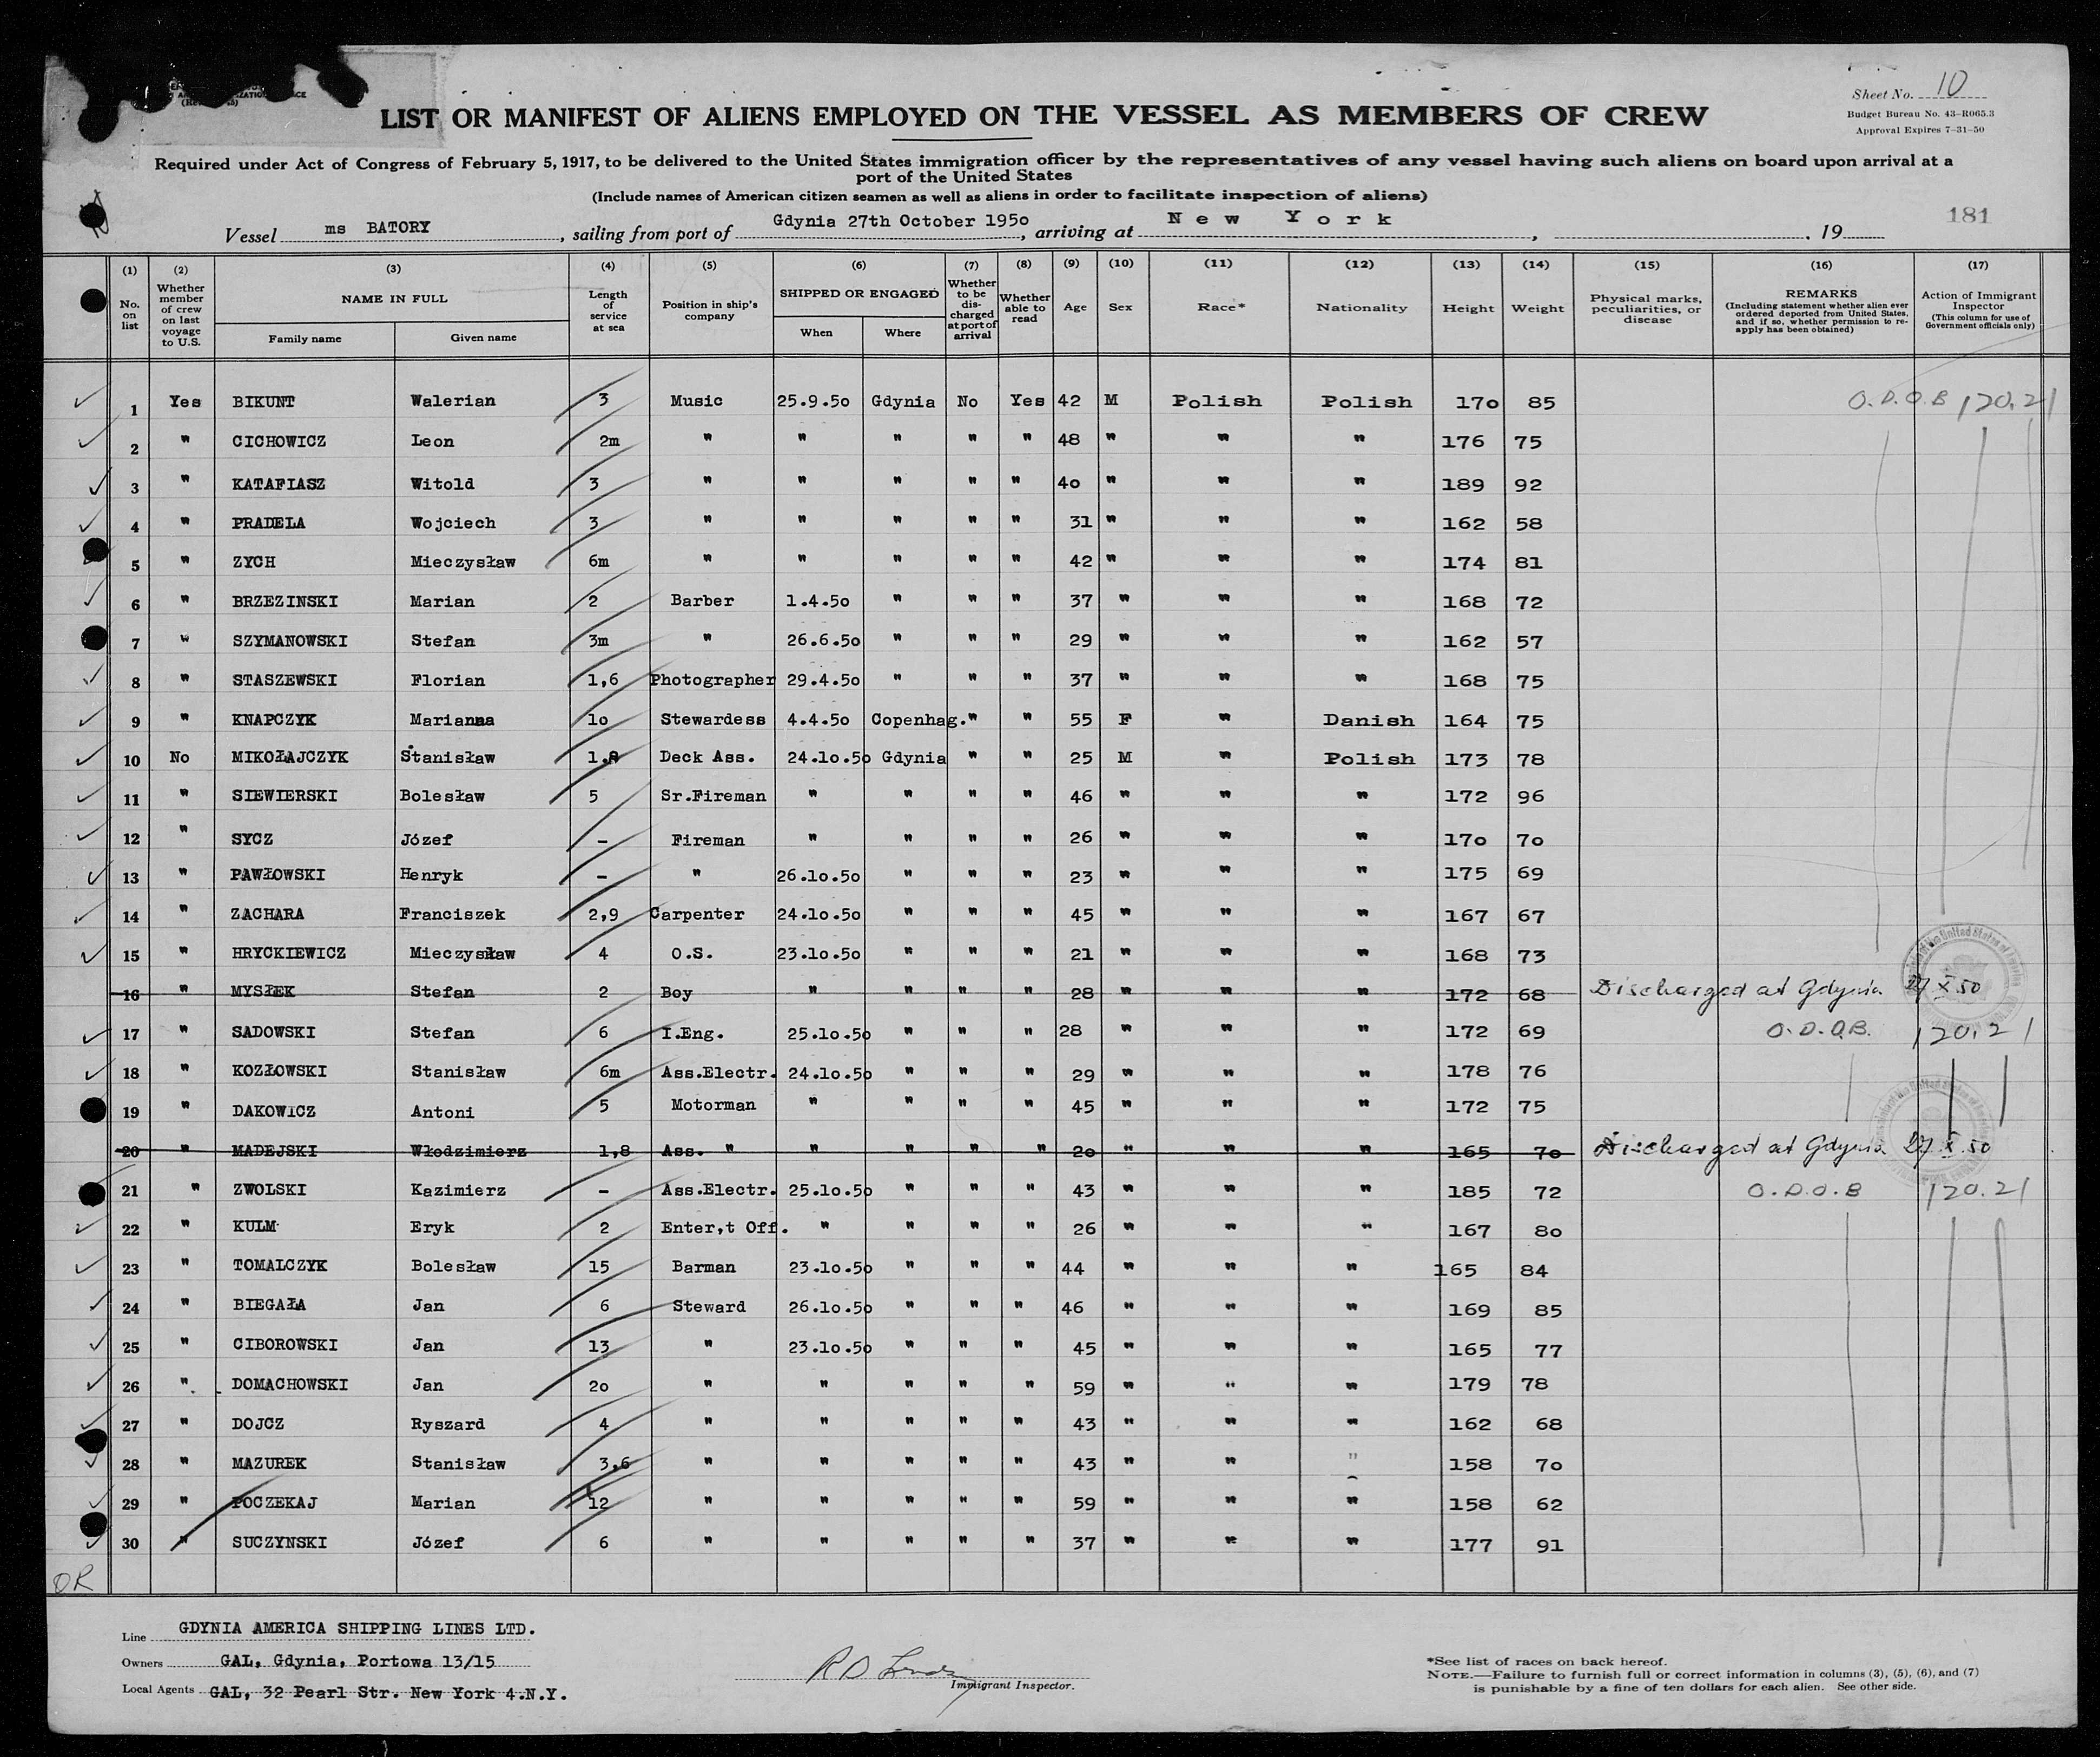 (Rev. 45)
Sheet No. 10
Budget Bureau No. 43-R065.3
Approval Expires 7-31-50
LIST OR MANIFEST OF ALIENS EMPLOYED ON THE VESSEL AS MEMBERS OF CREW
Required under Act of Congress of February 5, 1917, to be delivered to the United States immigration officer by the representatives of any vessel having such aliens on board upon arrival at a
port of the United States
(Include names of American citizen seamen as well as aliens in order to facilitate inspection of aliens)
181
Vessel ms BATORY, sailing from port of Gdynia 27th October 1950, arriving at New York, 19
(1) (2) (3) (4) (5) (6) (7) (8) (9) (10) (11) (12) (13) (14) (15) (16) (17)
No. on list
Whether member of crew on last voyage to U.S.
NAME IN FULL
Family name Given name
Length of service at sea
Position in ship's company
SHIPPED OR ENGAGED
When Where
Whether to be discharged at port of arrival
Whether able to read
Age Sex Race* Nationality Height Weight
Physical marks, peculiarities, or disease
REMARKS
(Including statement whether alien ever ordered deported from United States, and if so, whether permission to reapply has been obtained)
Action of Immigrant Inspector
(This column for use of Government officials only)
1 Yes BIKUNT Walerian 3 Music 25.9.50 Gdynia No Yes 42 M Polish Polish 170 85 O.D.O.B 120.21
2 " CICHOWICZ Leon 2m " " " " " 48 " " " 176 75
3 " KATAFIASZ Witold 3 " " " " " 40 " " " 189 92
4 " PRADELA Wojciech 3 " " " " " 31 " " " 162 58
5 " ZYCH Mieczysław 6m " " " " " 42 " " " 174 81
6 " BRZEZINSKI Marian 2 Barber 1.4.50 " " " 37 " " " 168 72
7 " SZYMANOWSKI Stefan 3m " 26.6.50 " " " 29 " " " 162 57
8 " STASZEWSKI Florian 1,6 Photographer 29.4.50 " " " 37 " " " 168 75
9 " KNAPCZYK Marianna 10 Stewardess 4.4.50 Copenhag. " " 55 F " Danish 164 75
10 No MIKOŁAJCZYK Stanisław Deck Ass. 24.10.50 Gdynia " " 25 M " Polish 173 78
11 " SIEWIERSKI Bolesław 5 Sr.Fireman " " " " 46 " " " 172 96
12 " SYCZ Józef - Fireman " " " " 26 " " " 170 70
13 " PAWŁOWSKI Henryk - " 26.10.50 " " " 23 " " " 175 69
14 " ZACHARA Franciszek 2,9 Carpenter 24.10.50 " " " 45 " " " 167 67
15 " HRYCKIEWICZ Mieczysław 4 O.S. 23.10.50 " " " 21 " " " 168 73
16 " MYSŁEK Stefan 2 Boy " " " " 28 " " " 172 68 Discharged at Gdynia 27 X 50
17 " SADOWSKI Stefan 6 I.Eng. 25.10.50 " " " 28 " " " 172 69 O.D.O.B. 120.21
18 " KOZŁOWSKI Stanisław 6m Ass.Electr. 24.10.50 " " " 29 " " " 178 76
19 " DAKOWICZ Antoni 5 Motorman " " " " 45 " " " 172 75
20 " MADEJSKI Włodzimierz 1,8 Ass. " " " " " 20 " " " 165 70 Discharged at Gdynia 27 X 50
21 " ZWOLSKI Kazimierz - Ass.Electr. 25.10.50 " " " 43 " " " 185 72 O.D.O.B 120.21
22 " KULM Eryk 2 Enter,t Off. " " " " 26 " " " 167 80
23 " TOMALCZYK Bolesław 15 Barman 23.10.50 " " " 44 " " " 165 84
24 " BIEGAŁA Jan 6 Steward 26.10.50 " " " 46 " " " 169 85
25 " CIBOROWSKI Jan 13 " 23.10.50 " " " 45 " " " 165 77
26 " DOMACHOWSKI Jan 20 " " " " " 59 " " " 179 78
27 " DOJCZ Ryszard 4 " " " " " 43 " " " 162 68
28 " MAZUREK Stanisław 3,6 " " " " " 43 " " " 158 70
29 " POCZEKAJ Marian 12 " " " " " 59 " " " 158 62
30 " SUCZYNSKI Józef 6 " " " " " 37 " " " 177 91
OR
Line GDYNIA AMERICA SHIPPING LINES LTD.
Owners GAL, Gdynia, Portowa 13/15
Local Agents GAL, 32 Pearl Str. New York 4.N.Y.
Immigrant Inspector.
*See list of races on back hereof.
NOTE.—Failure to furnish full or correct information in columns (3), (5), (6), and (7)
is punishable by a fine of ten dollars for each alien. See other side.